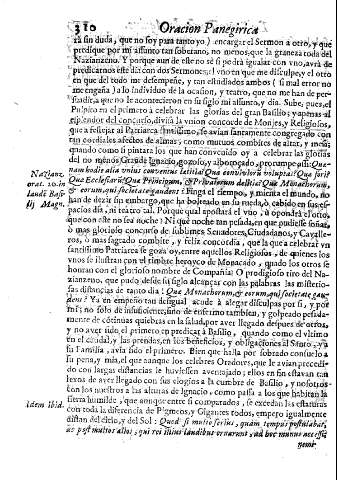 310 Oracion Panegirica
rà sin duda, que no soy para tanto yo) encargar el Sermon à otro, y que
predique por mi assunto tan soberano, no menos, que la grandeza toda del
Nazianzeno. Y porque aun de este no sé si podrà igualar con vno, avrà de
predicarnos este dia con dos Sermones: el vno en que me disculpe, y el otro
en que del todo me desempeñe, y tan estudiados ambos (si mal error no
me engaña) à lo individuo de la ocasion, y teatro, que no me han de per-
suadir, a que no le acontecieron en su siglo mi assunto, y dia. Sube, pues, el
Pulpito en el primero à celebrar las glorias del gran Basilio; y apenas al
esplendor del concurso, diviò la vnion concorde de Monjes, y Religiosos,
que a festejar al Patriarca santissimo, se avian santamente congregado con
tan cordiales afectos de almas; como mutuos combites de altar, y mesa;
quando como si pintara los que han convenido oy a celebrar las glorias
del no menos Grande Ignacio, gozoso, y alborozado, prorrumpe assi: Quæ-
nam hodie alia vnius conventus lætitia? Qua convivioru voluptas? Qua fori?
Qua Ecclesiarũ? Qua Principum, & Privatorum delitiæ? Qua Monachorum,
& eorum, qui societate gaudent? Finga el tiempo, y mienta el mundo, no
han de dezir sin embargo, que ha bolteado en su rueda, ò cabido en sus es-
pacios dia, ni teatro tal. Porque qual apostarà el vno, ù opondrà el otro,
que con este no sea noche? Ni què noche tan pesada, en que pudiesse soñar,
ò mas glorioso concurso de sublimes Senadores, Ciudadanos, y Cavalle-
ros, ò mas sagrado combite, y feliz concordia, que la que a celebrar vn
santissimo Patriarca se goza oy, entre aquellos Religiosos, de quienes los
vnos se ilustran con el timbre heroyco de Monacado, quãdo los otros se
honran con el glorioso nombre de Compañia? O prodigioso tiro del Na-
zianzeno, que pudo desde su siglo alcançar con las palabras las misterio-
sas distancias de tanto dia! Qua Monachorum, & eorum, qui societate gau-
dent? Ya en empeño tan desigual acude à alegar disculpas por si, y por
mi; no solo de insuficiencia, sino de enfermo tambien, y golpeado pesada-
mente de cõtinuas quiebras en la salud, por aver llegado despues de otros,
y no aver sido el primero en predicar à Basilio, quando como el vltimo
en el caudal, y las prendas, en los beneficios, y obligaciones al Santo, y à
su Familia, avia sido el primero. Bien que halla por sobrado consuelo a
su pena, y mia, el que aunque los celebres Oradores, que le avian precedi-
do con largas distancias le huviessen aventajado; ellos en fin estavan tan
lexos de aver llegado con sus elogios à la cumbre de Basilio, y nosotros
con los nuestros à las alturas de Ignacio, como passa à los que habitan la
tierra humilde, que aunque entre si comparados, se excedan las estaturas
con toda la diferencia de Pigmeos, y Gigantes todos, empero igualmente
distan del cielo, y del Sol: Quod si multo serius, quàm tempus postulabat,
ac post multos alios, qui res illius laudibus ornarunt, ad hoc munus accessi
nemi-
Nazianz.
orat. 20. in
laudẽ Basi-
lij Magn.
Idem ibid.